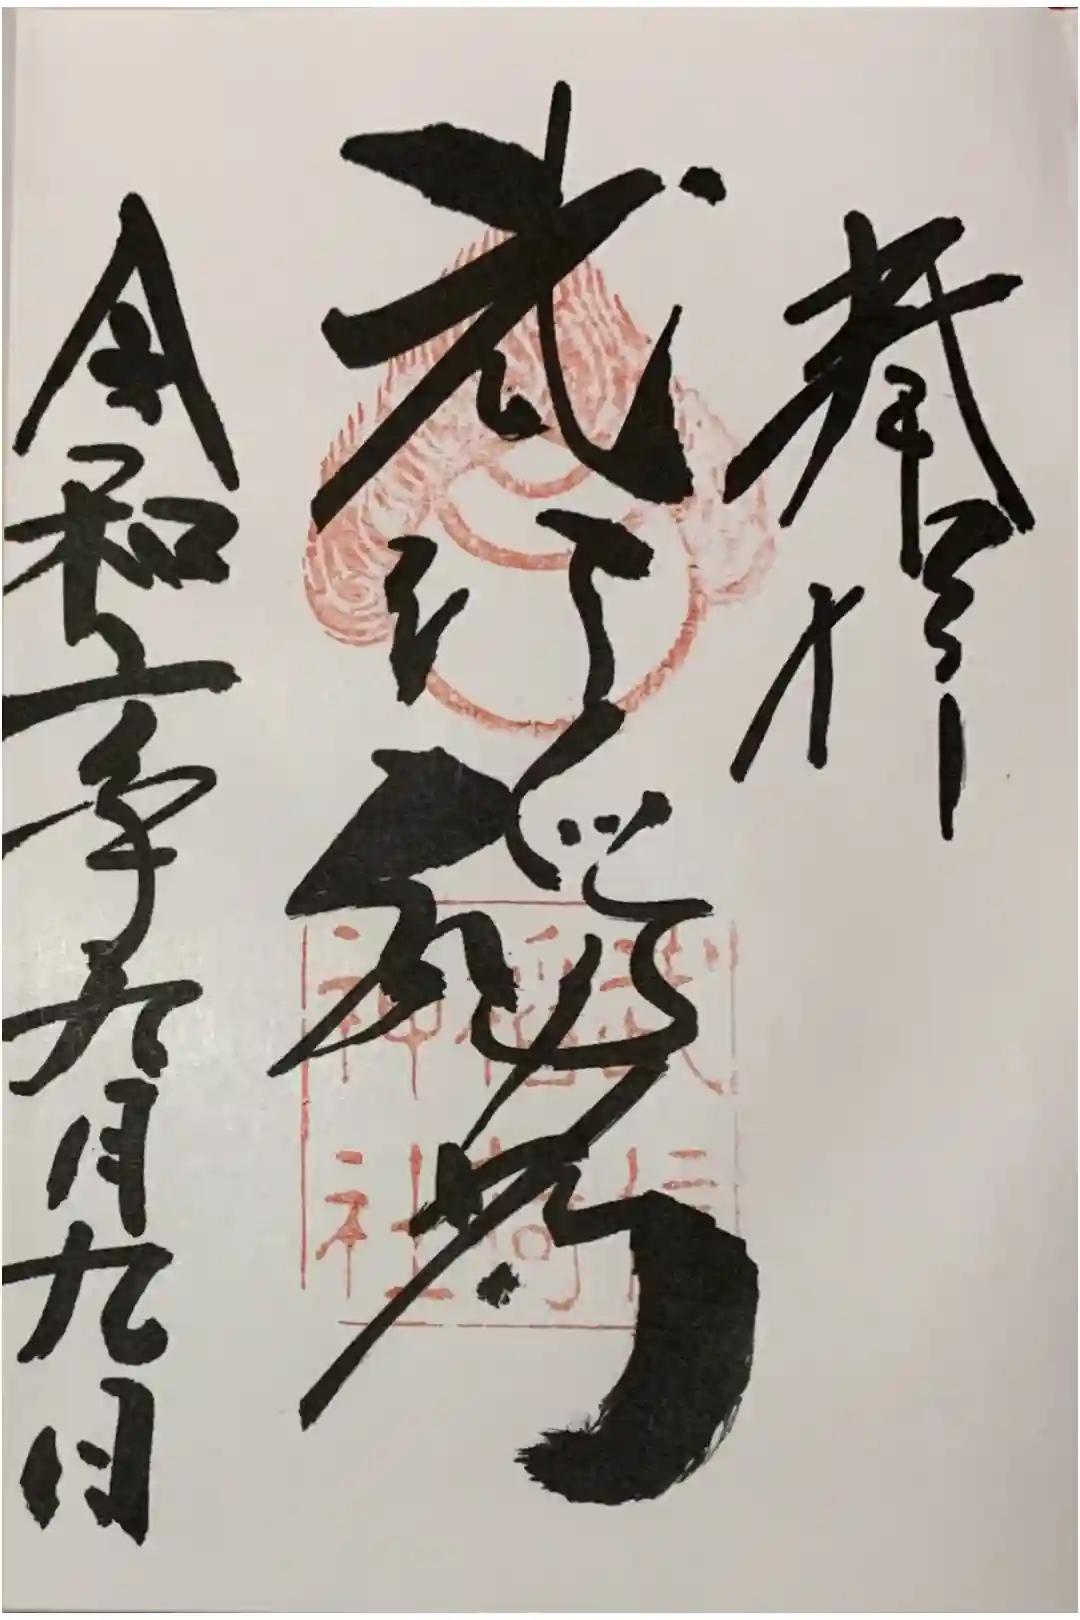 奉拝
武信稲荷
武信
稲荷
神社
令和二年九月九日